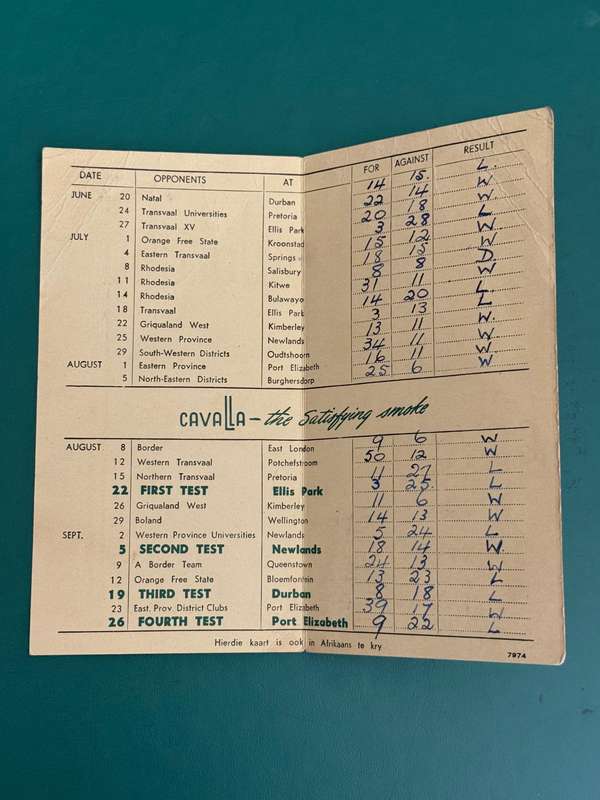 DATE OPPONENTS AT FOR AGAINST RESULT
JUNE 20 Natal Durban 14 15. L.
24 Transvaal Universities Pretoria 22 14 W
27 Transvaal XV Ellis Park 20 18 W
JULY 1 Orange Free State Kroonstad 3 28 L
4 Eastern Transvaal Springs 15 12 W
8 Rhodesia Salisbury 18 15 W
11 Rhodesia Kitwe 8 8 D
14 Rhodesia Bulawayo 31 11 W
18 Transvaal Ellis Park 14 20 L
22 Griqualand West Kimberley 3 13 L
25 Western Province Newlands 13 11 W.
29 South-Western Districts Oudtshoorn 34 11 W
AUGUST 1 Eastern Province Port Elizabeth 16 11 W
5 North-Eastern Districts Burghersdorp 25 6 W
CAVALLA – the Satisfying smoke
AUGUST 8 Border East London 9 6 W
12 Western Transvaal Potchefstroom 50 12 W
15 Northern Transvaal Pretoria 11 27 L
22 FIRST TEST Ellis Park 3 25. L
26 Griqualand West Kimberley 11 6 W
29 Boland Wellington 14 13 W
SEPT. 2 Western Province Universities Newlands 5 24 L
5 SECOND TEST Newlands 18 14 W.
9 A Border Team Queenstown 24 13 W
12 Orange Free State Bloemfontein 13 23 L
19 THIRD TEST Durban 8 18 L
23 East. Prov. District Clubs Port Elizabeth 39 17 W
26 FOURTH TEST Port Elizabeth 9 22 L
Hierdie kaart is ook in Afrikaans te kry
7974